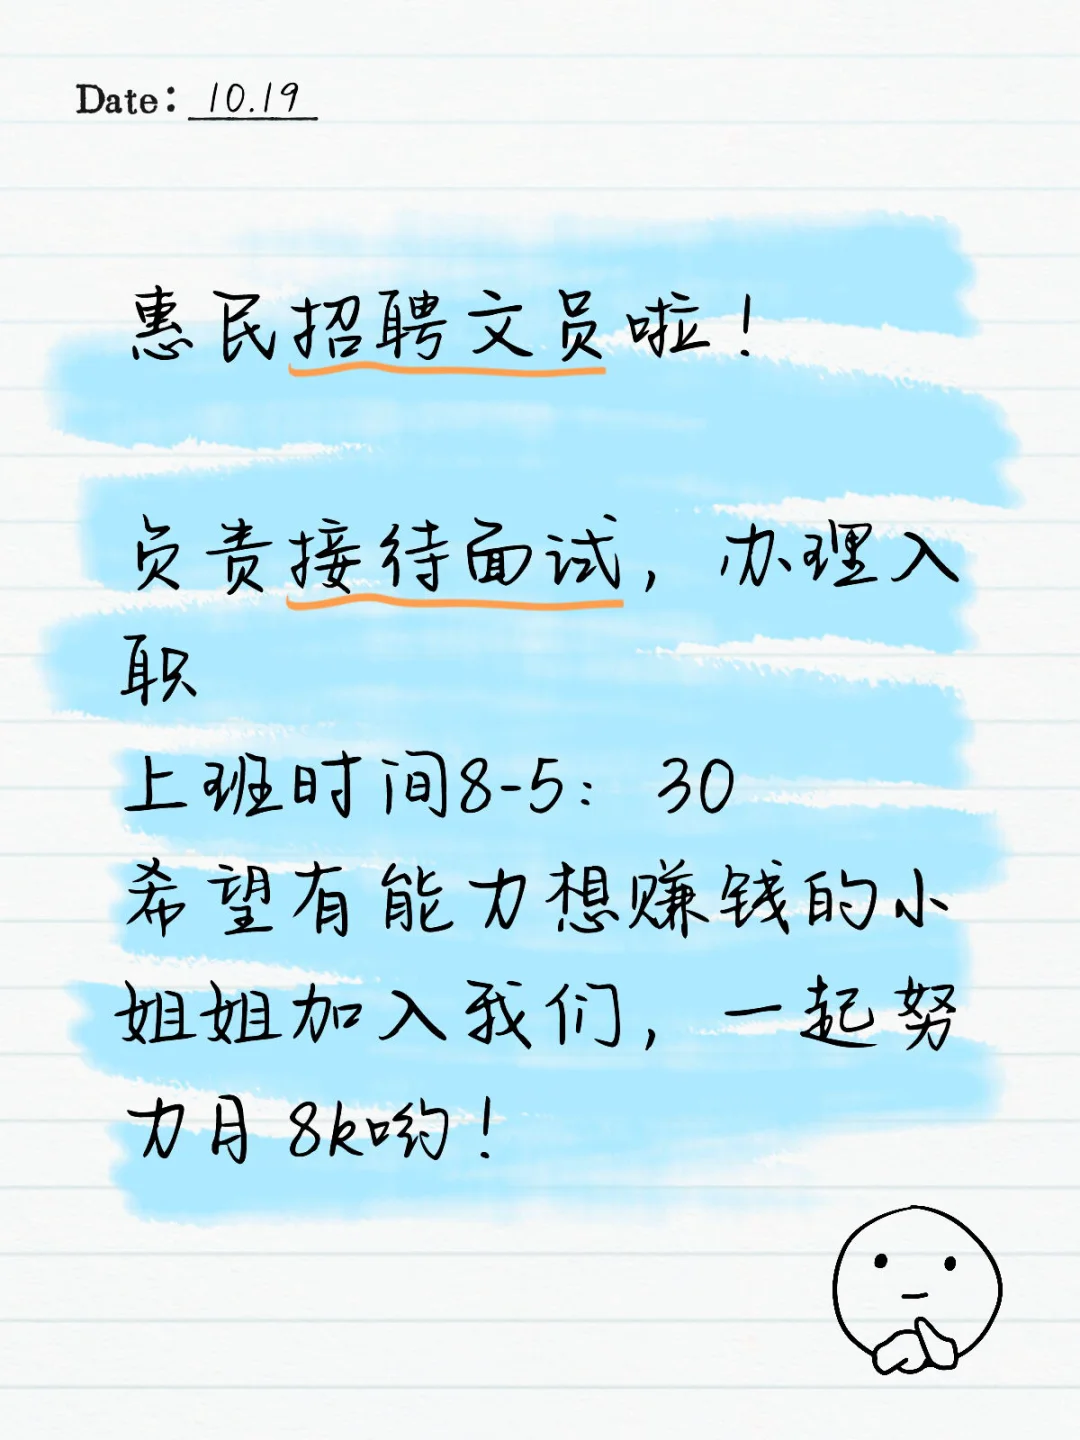 Date: 10.19
惠民招聘文员啦！
负责接待面试，办理入
职
上班时间8-5：30
希望有能力想赚钱的小
姐姐加入我们，一起努
力月8k哟！